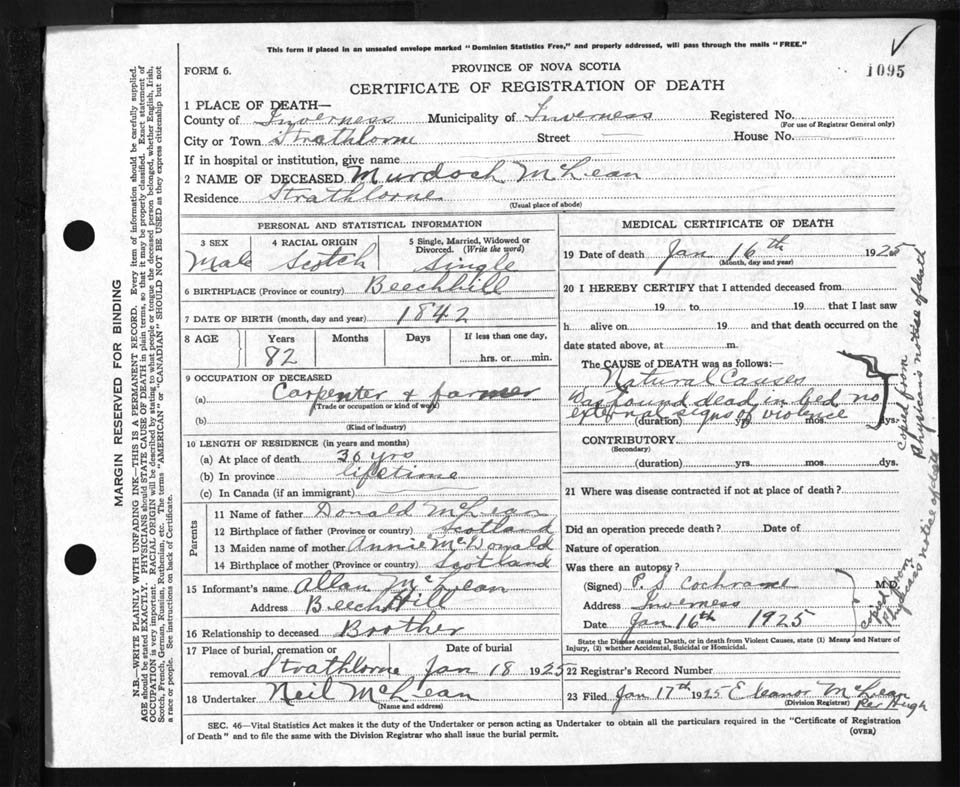 This form if placed in an unsealed envelope marked "Dominion Statistics Free," and properly addressed, will pass through the mails "FREE."
FORM 6.
PROVINCE OF NOVA SCOTIA
1095
CERTIFICATE OF REGISTRATION OF DEATH
1 PLACE OF DEATH—
County of Inverness Municipality of Inverness Registered No.
(For use of Registrar General only)
City or Town Strathlorne Street — House No.
If in hospital or institution, give name
2 NAME OF DECEASED Murdoch McLean
Residence Strathlorne
(Usual place of abode)
PERSONAL AND STATISTICAL INFORMATION
3 SEX 4 RACIAL ORIGIN 5 Single, Married, Widowed or Divorced. (Write the word)
Male Scotch Single
6 BIRTHPLACE (Province or country) Beechhill
7 DATE OF BIRTH (month, day and year) 1842
8 AGE Years Months Days If less than one day,
82 hrs. or min.
9 OCCUPATION OF DECEASED
(a) Carpenter & farmer
(Trade or occupation or kind of work)
(b)
(Kind of industry)
10 LENGTH OF RESIDENCE (in years and months)
(a) At place of death 36 yrs
(b) In province lifetime
(c) In Canada (if an immigrant)
Parents
11 Name of father Donald McLean
12 Birthplace of father (Province or country) Scotland
13 Maiden name of mother Annie McDonald
14 Birthplace of mother (Province or country) Scotland
15 Informant's name Allan McLean
Address Beech Hill
16 Relationship to deceased Brother
17 Place of burial, cremation or removal Date of burial
Strathlorne Jan 18 1925
18 Undertaker Neil McLean
(Name and address)
MEDICAL CERTIFICATE OF DEATH
19 Date of death Jan 16th 1925
(Month, day and year)
20 I HEREBY CERTIFY that I attended deceased from
19 to 19 that I last saw
h alive on 19 and that death occurred on the
date stated above, at m.
The CAUSE of DEATH was as follows:—
Natural Causes
Was found dead in bed no
external signs of violence
(duration) yrs. mos. dys.
CONTRIBUTORY
(Secondary)
(duration) yrs. mos. dys.
copied from
Physicians notice of death
21 Where was disease contracted if not at place of death?
Did an operation precede death? Date of
Nature of operation
Was there an autopsy?
(Signed) P. S Cochrane M.D.
Address Inverness
Date Jan 16th 1925
copied from
Physicians notice of death
State the Disease causing Death, or in death from Violent Causes, state (1) Means and Nature of
Injury, (2) whether Accidental, Suicidal or Homicidal.
22 Registrar's Record Number
23 Filed Jan 17th 1925 Eleanor McLean
(Division Registrar) Per Hugh
SEC. 46—Vital Statistics Act makes it the duty of the Undertaker or person acting as Undertaker to obtain all the particulars required in the "Certificate of Registration
of Death" and to file the same with the Division Registrar who shall issue the burial permit.
(OVER)
MARGIN RESERVED FOR BINDING
N.B.—WRITE PLAINLY WITH UNFADING INK—THIS IS A PERMANENT RECORD. Every item of information should be carefully supplied.
AGE should be stated EXACTLY. PHYSICIANS should STATE CAUSE OF DEATH in plain terms, so that it may be properly classified. Exact statement of
OCCUPATION is very important. RACIAL ORIGIN will be described by stating to what people or tongue the deceased person belonged, whether English, Irish,
Scotch, French, German, Russian, Ruthenian, etc. The terms "AMERICAN" or "CANADIAN" SHOULD NOT BE USED as they express citizenship but not
a race or people. See instructions on back of Certificate.